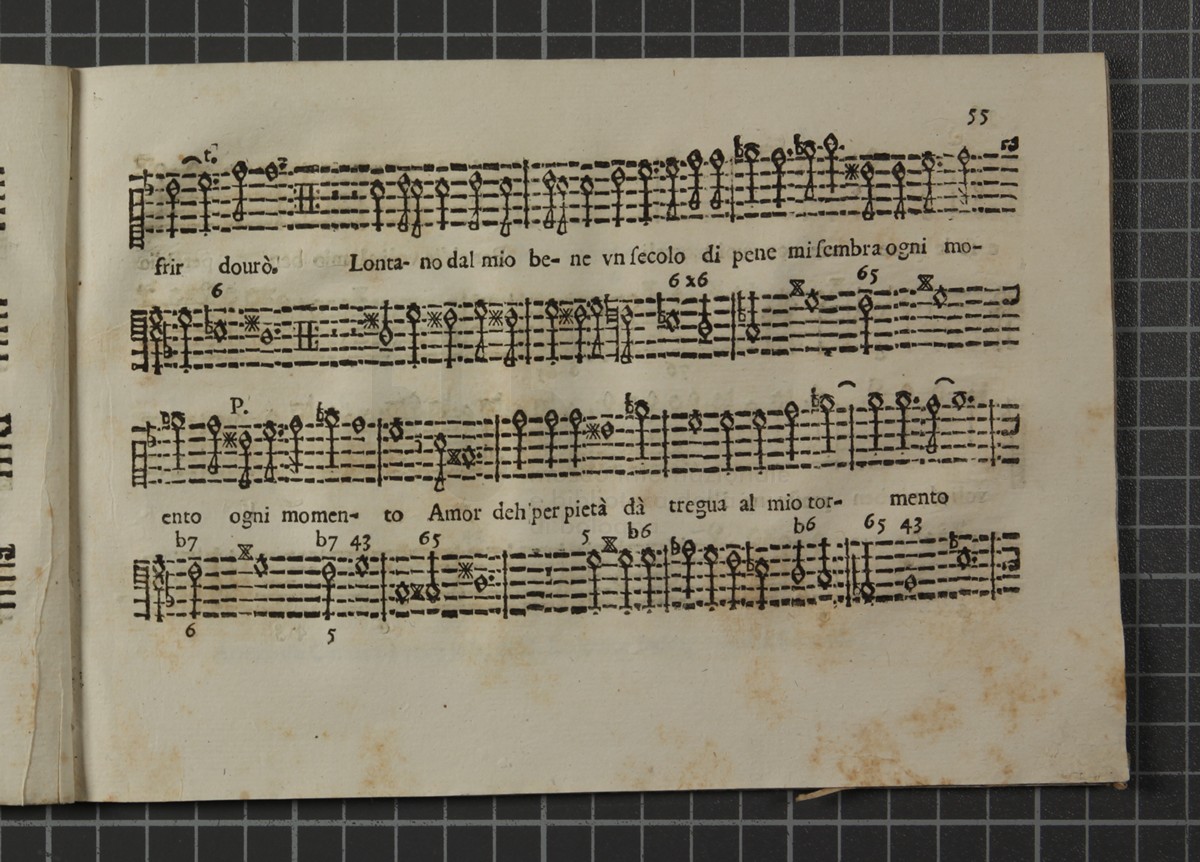 55
t.
frir dourò. Lonta- no dal mio be- ne vn ſecolo di pene mi ſembra ogni mo-
6 6 x6 65
P.
ento ogni momen- to Amor deh'per pietà dà tregua al mio tor- mento
b7 b7 43 65 5 b6 b6 65 43
6 5